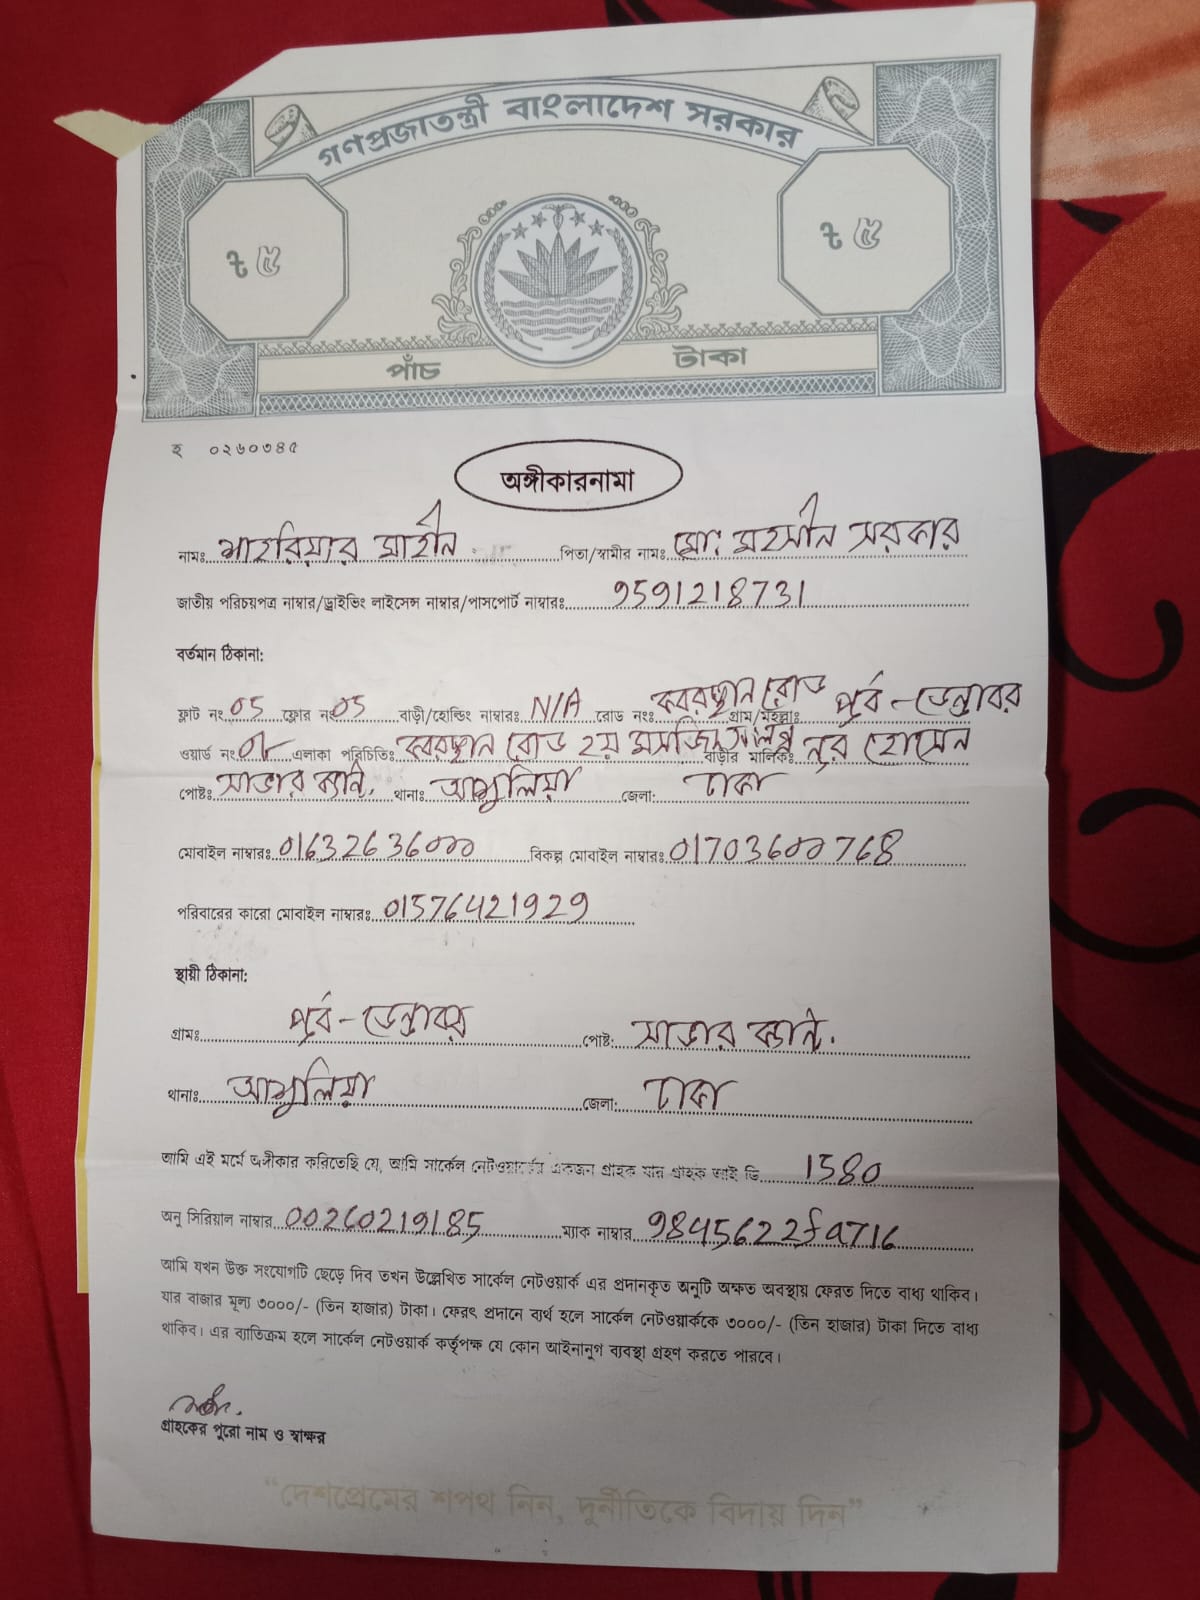 গণপ্রজাতন্ত্রী বাংলাদেশ সরকার
৳ ৫ ৳ ৫
পাঁচ টাকা
হ ০২৬০৩৪৫
অঙ্গীকারনামা
নামঃ শাহরিয়ার মাহীন পিতা/স্বামীর নামঃ মো. মহসীন সরকার
জাতীয় পরিচয়পত্র নাম্বার/ড্রাইভিং লাইসেন্স নাম্বার/পাসপোর্ট নাম্বারঃ 9591218731
বর্তমান ঠিকানা:
ফ্লাট নং 05 ফ্লোর নং 05 বাড়ী/হোল্ডিং নাম্বারঃ N/A রোড নংঃ কবরস্থান রোড গ্রাম/মহল্লাঃ পূর্ব-ডেন্ডাবর
ওয়ার্ড নং এলাকা পরিচিতিঃ কবরস্থান রোড ২য় মসজিদ সংলগ্ন বাড়ীর মালিকঃ নূর হোসেন
পোষ্টঃ সাভার ক্যান্ট. থানাঃ আশুলিয়া জেলা: ঢাকা
মোবাইল নাম্বারঃ 01632636000 বিকল্প মোবাইল নাম্বারঃ 01703600768
পরিবারের কারো মোবাইল নাম্বারঃ 01576421929
স্থায়ী ঠিকানা:
গ্রামঃ পূর্ব-ডেন্ডাবর পোষ্ট: সাভার ক্যান্ট.
থানাঃ আশুলিয়া জেলা: ঢাকা
আমি এই মর্মে অঙ্গীকার করিতেছি যে, আমি সার্কেল নেটওয়ার্কের একজন গ্রাহক যার গ্রাহক আই ডি 1580
অনু সিরিয়াল নাম্বার 00260219185 ম্যাক নাম্বার 9845622fa716
আমি যখন উক্ত সংযোগটি ছেড়ে দিব তখন উল্লেখিত সার্কেল নেটওয়ার্ক এর প্রদানকৃত অনুটি অক্ষত অবস্থায় ফেরত দিতে বাধ্য থাকিব।
যার বাজার মূল্য ৩০০০/- (তিন হাজার) টাকা। ফেরৎ প্রদানে ব্যর্থ হলে সার্কেল নেটওয়ার্ককে ৩০০০/- (তিন হাজার) টাকা দিতে বাধ্য
থাকিব। এর ব্যতিক্রম হলে সার্কেল নেটওয়ার্ক কর্তৃপক্ষ যে কোন আইনানুগ ব্যবস্থা গ্রহণ করতে পারবে।
গ্রাহকের পুরো নাম ও স্বাক্ষর
“দেশপ্রেমের শপথ নিন, দুর্নীতিকে বিদায় দিন”